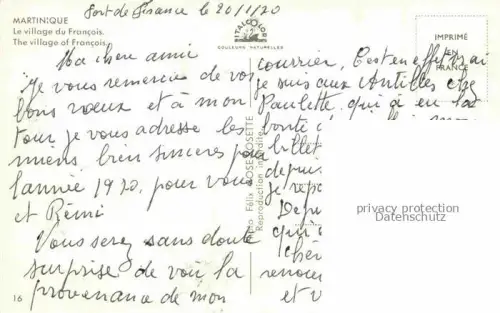 MARTINIQUE
Le village du François.
The village of François.
Fort de France le 20/1/70
ITALCOLOR
COULEURS NATURELLES
IMPRIMÉ
EN
FRANCE
Ma chère amie
Je vous remercie de vos
bons vœux et à mon
tour je vous adresse les
miens bien sincères pour
l'année 1970, pour vous
et Rémi
Vous serez sans doute
surprise de voir la
provenance de mon
16
Photo Félix ROSE-ROSETTE
Reproduction interdite
courrier, C'est en effet vrai
je suis aux Antilles chez
Paulette qui a eu la
bonté
billet
depuis
je
Depu
qui
rencon
et v
privacy protection
Datenschutz